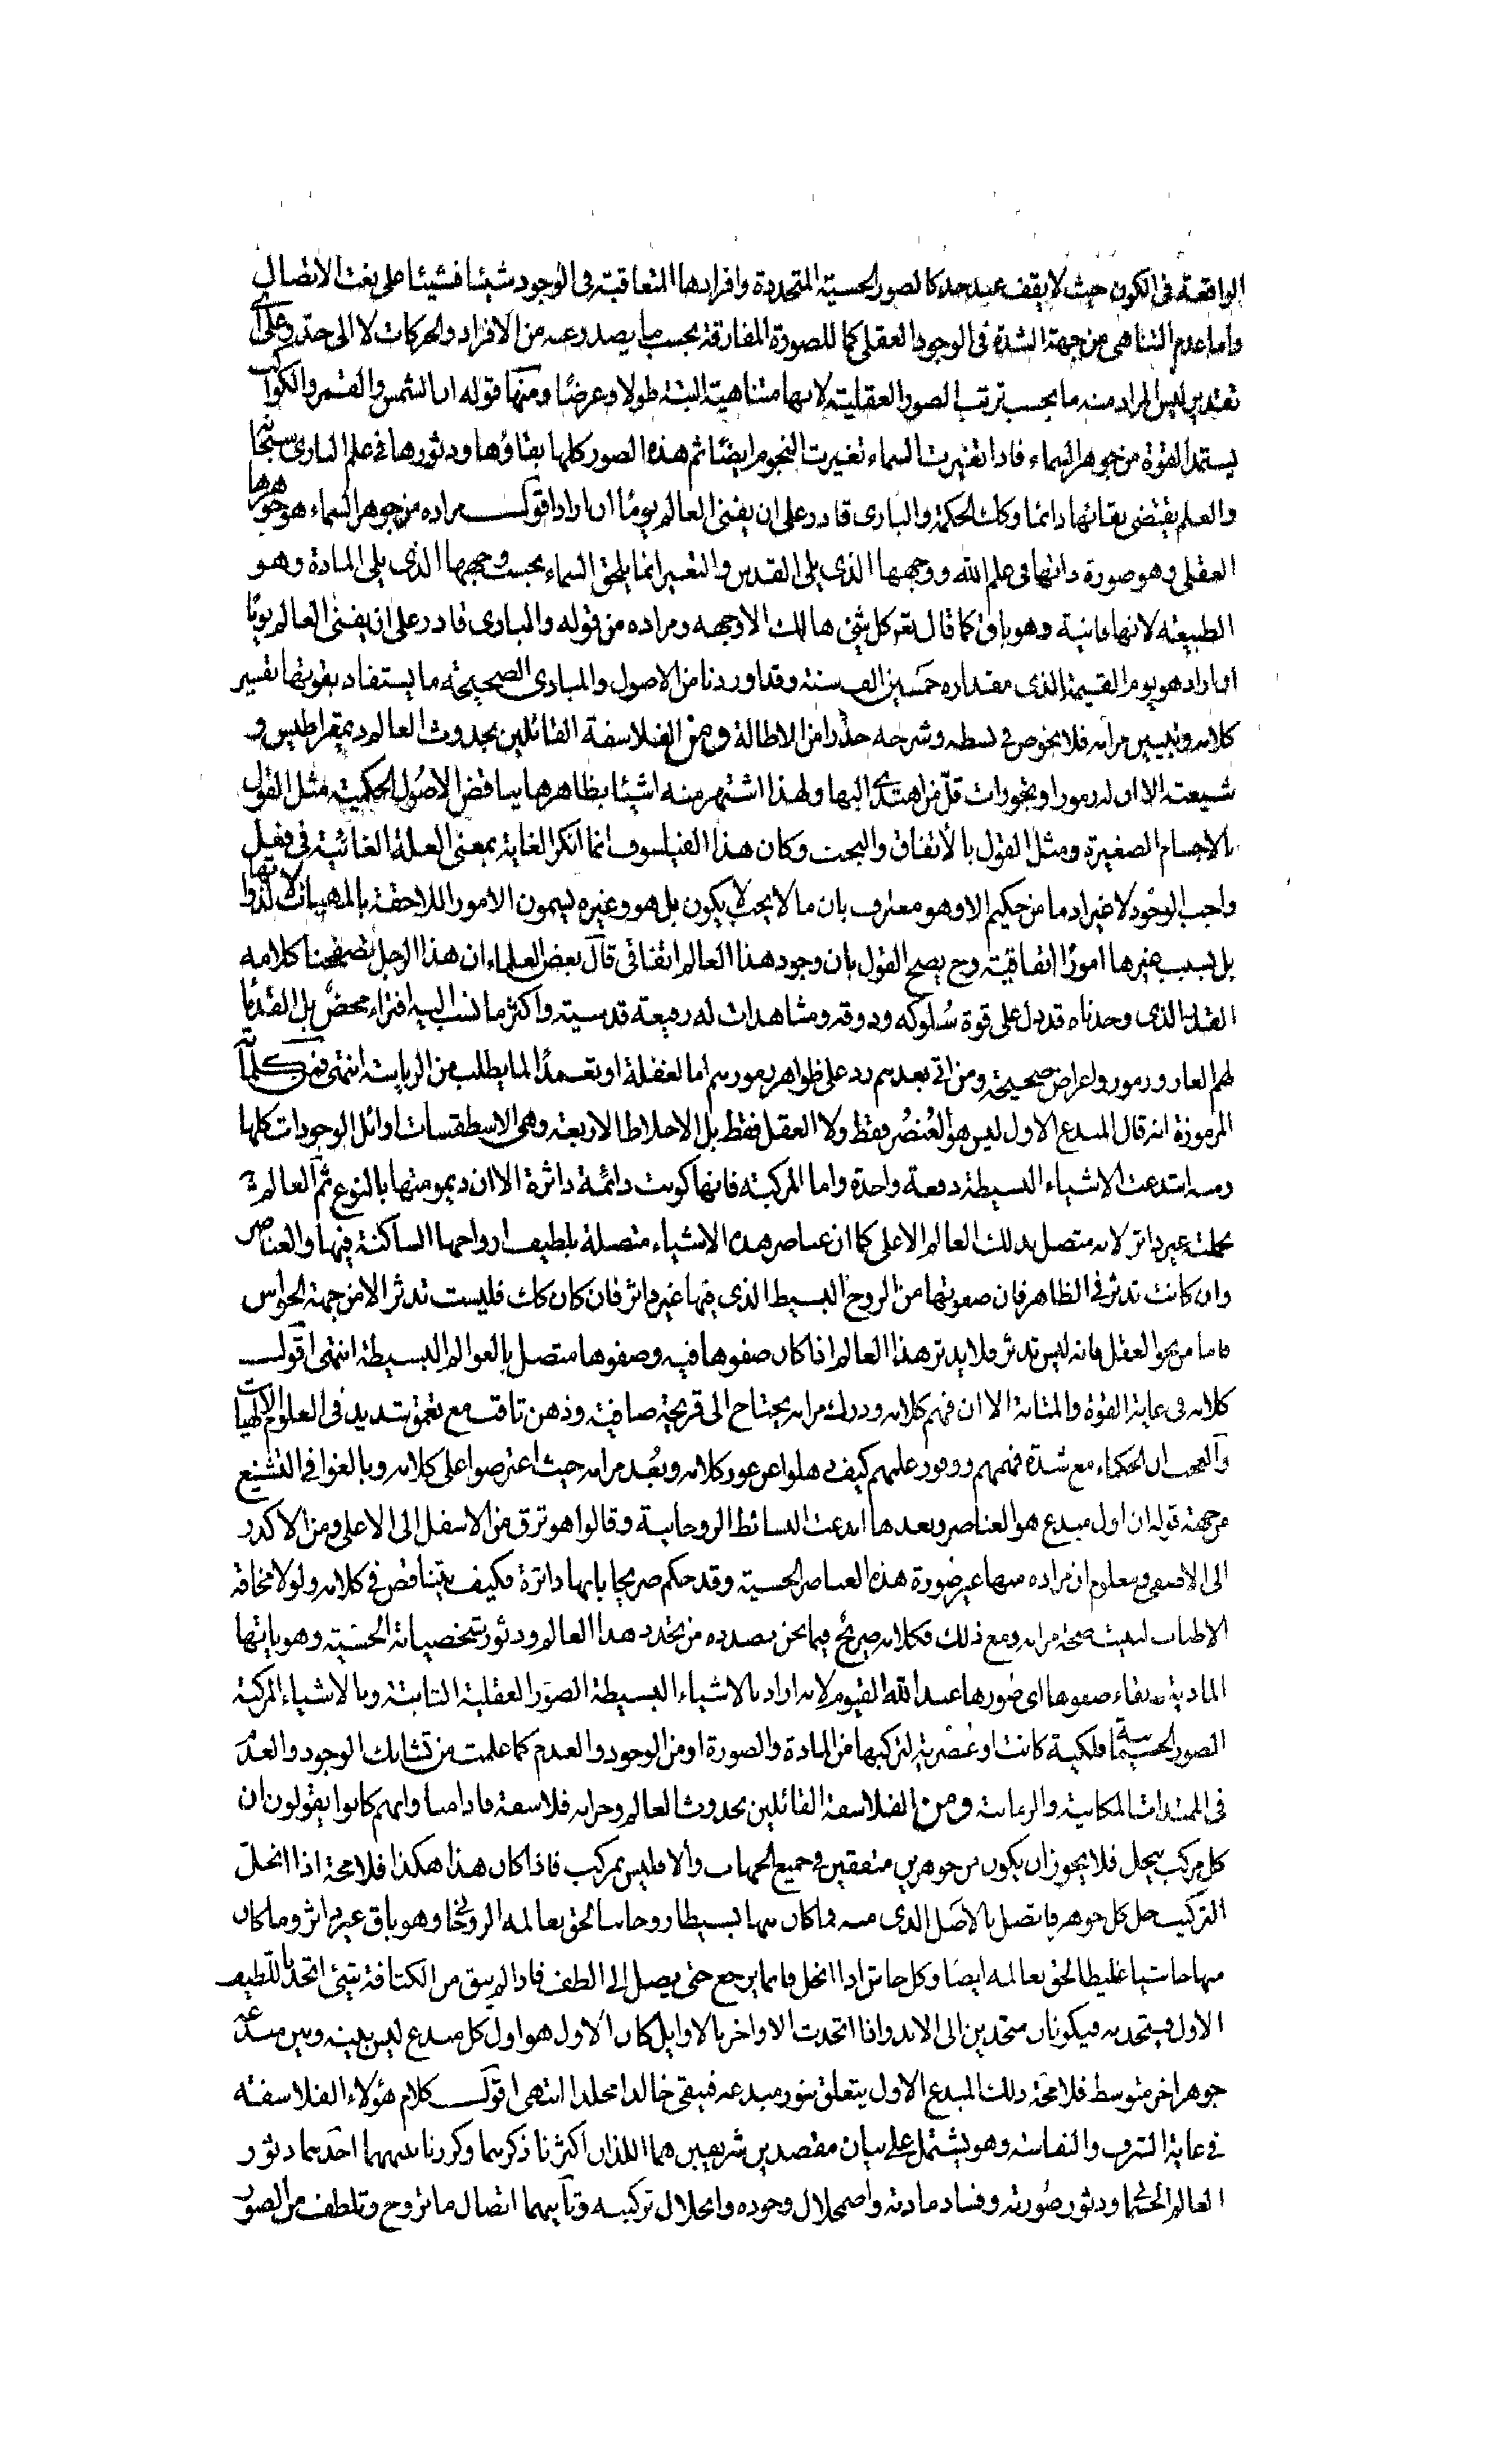 الواقعة فى الكون حيث لا يقف عند حد كالصور الحسية المتجددة وافرادها المتعاقبة فى الوجود شيئا فشيئا على نعت الاتصال
واما عدم التناهى من جهة الشدة فى الوجود العقلى كما للصورة المفارقة بحسب ما يصدر عنه من الافراد والحركات لا الى حد وعلى اى
تقدير ليس المراد منه ما بحسب ترتب الصور العقلية لانها متناهية البتة طولا وعرضا ومنها قوله ان الشمس والقمر والكواكب
يستمد القوة من جوهر السماء فاذا تغيرت السماء تغيرت النجوم ايضا ثم هذه الصور كلها بقاؤها ودثورها فى علم البارى سبحانه
والعلم يقتضى بقائها دائما وكك الحكمة والبارى قادر على ان يفنى العالم يوما ان اراد اقول مراده من جوهر السماء هو جوهرها
العقلى وهو صورة ذاتها فى علم الله ووجهها الذى يلى القدس والتغير انما يلحق السماء بحسب وجهها الذى يلى المادة وهو
الطبيعة لانها فانية وهو باق كما قال تعر كل شئ هالك الا وجهه ومراده من قوله والبارى قادر على ان يفنى العالم يوما
ان اراد هو يوم القيمة الذى مقداره خمسين الف سنة وقد اوردنا من الاصول والمبادى الصحيحة ما يستفاد بقوتها تفسير
كلامه وتبيين مرامه فلا نخوض فى بسطه وشرحه حذرا من الاطالة ومن الفلاسفة القائلين بحدوث العالم ديمقراطيس و
شيعته الا ان له رموزا وتجوزات قل من اهتدى اليها ولهذا اشتهر منه اشيئا بظاهرها يناقض الاصول الحكمية مثل القول
بالاجسام الصغيرة ومثل القول بالاتفاق والبخت وكان هذا الفيلسوف انما انكر الغاية بمعنى العلة الغائية فى فعل
واجب الوجود لا غير اذ ما من حكيم الا وهو معترف بان ما لا يجب لا يكون بل هو وغيره يسمون الامور اللاحقة بالمهيات لا لذواتها
بل بسبب غيرها امورا اتفاقية وح يصح القول بان وجود هذا العالم اتفاقى قال بعض العلماء ان هذا الرجل تصفحنا كلامه
القليل الذى وجدناه قد دل على قوة سلوكه وذوقه ومشاهدات له رفيعة قدسية واكثر ما نسب اليه افتراء محض بل القدماء
لهم الغاز ورموز واغراض صحيحة ومن اتى بعدهم رد على ظواهر رموزهم اما لغفلة او تعمدا لما يطلب من الرياسة انتهى فمن كلماته
المرموزة انه قال المبدع الاول ليس هو العنصر فقط ولا العقل فقط بل الاخلاط الاربعة وهى الاسطقسات اوائل الموجودات كلها
ومنه ابتدعت الاشياء البسيطة دفعة واحدة واما المركبة فانها كونت دائمة داثرة الا ان ديمومتها بالنوع ثم العالم
بجملته غير داثر لانه متصل بذلك العالم الاعلى كما ان عناصر هذه الاشياء متصلة بلطيف ارواحها الساكنة فيها والعناصر
وان كانت تدثر فى الظاهر فان صفوتها من الروح البسيط الذى فيها غير داثر فان كان كك فليست تدثر الا من جهة الحواس
فاما من نحو العقل فانه ليس تدثر فلا يدثر هذا العالم اذا كان صفوها فيه وصفوها متصل بالعوالم البسيطة انتهى اقول
كلامه فى غاية القوة والمتانة الا ان فهم كلامه ودرك مرامه يحتاج الى قريحة صافية وذهن ثاقب مع تعمق شديد فى العلوم الالهيات
والعجب ان الحكماء مع شدة فهمهم ووفور علمهم كيف ذهلوا عن غور كلامه وبعد مرامه حيث اعترضوا على كلامه وبالغوا فى التشنيع
من جهة قوله ان اول مبدع هو العناصر وبعدها ابدعت البسائط الروحانية وقالوا هو ترق من الاسفل الى الاعلى ومن الاكدر
الى الاصفى ومعلوم ان مراده منها غير صورة هذه العناصر الحسية وقد حكم صريحا بانها داثرة فكيف يتناقض فى كلامه ولولا مخافة
الاطناب لبينت صحة مرامه ومع ذلك فكلامه صريح فيما نحن بصدده من تجدد هذا العالم ودثور شخصياته الحسية وهوياتها
المادية مع بقاء صفوها اى صورها عند الله القيوم لانه اراد بالاشياء البسيطة الصور العقلية الثابتة وبالاشياء المركبة
الصور الجسمانية فلكية كانت او عنصرية لتركبها من المادة والصورة او من الوجود والعدم كما علمت من تشابك الوجود والعدم
فى الممتدات المكانية والزمانية ومن الفلاسفة القائلين بحدوث العالم وخرابه فلاسفة فاذاميا وانهم كانوا يقولون ان
كل مركب ينحل فلا يجوز ان يكون من جوهرين متفقين فى جميع الجهات والا فليس بمركب فاذا كان هذا هكذا فلا محة اذا انحل
التركيب حل كل جوهر فاتصل بالاصل الذى منه فما كان منها بسيطا روحانيا لحق بعالمه الروحانى وهو باق غير داثر وما كان
منها جاسيا غليظا لحق بعالمه ايضا وكل جاس اذا انحل فانما يرجع حتى يصل الى الطف فاذا لم يبق من الكثافة شئ اتحد باللطيف
الاول فيتحد به فيكونان متحدين الى الابد واذا اتحدت الاواخر بالاوايل كان الاول هو اول كل مبدع ليس بينه وبين مبدعه
جوهر اخر متوسط فلا محة ذلك المبدع الاول يتعلق بنور مبدعه فيبقى خالدا مخلدا انتهى اقول كلام هؤلاء الفلاسفة
فى غاية الشرف والنفاسة وهو يشتمل على بيان مقصدين شريفين هما اللذان اكثرنا ذكرهما وكررنا احدهما دثور
العالم الجسمانى ودثور صورته وفساد مادته واضمحلال وجوده وانحلال تركيبه وثانيهما اتصال ما تروح وتلطف من الصور